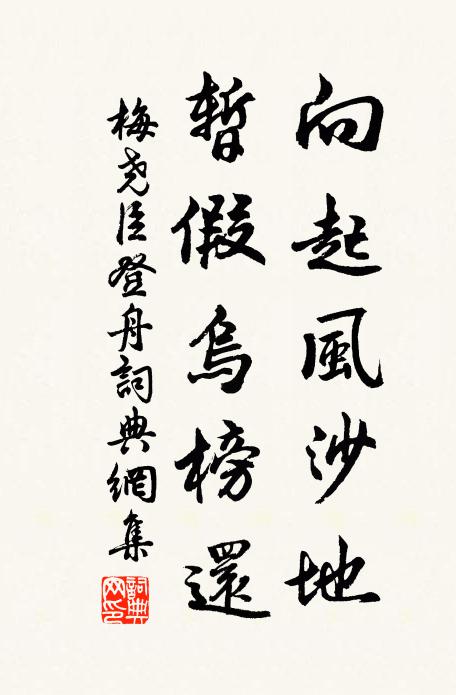 向起風沙地
暫假烏榜還
梅尧臣登舟詞典網集
詞典网印